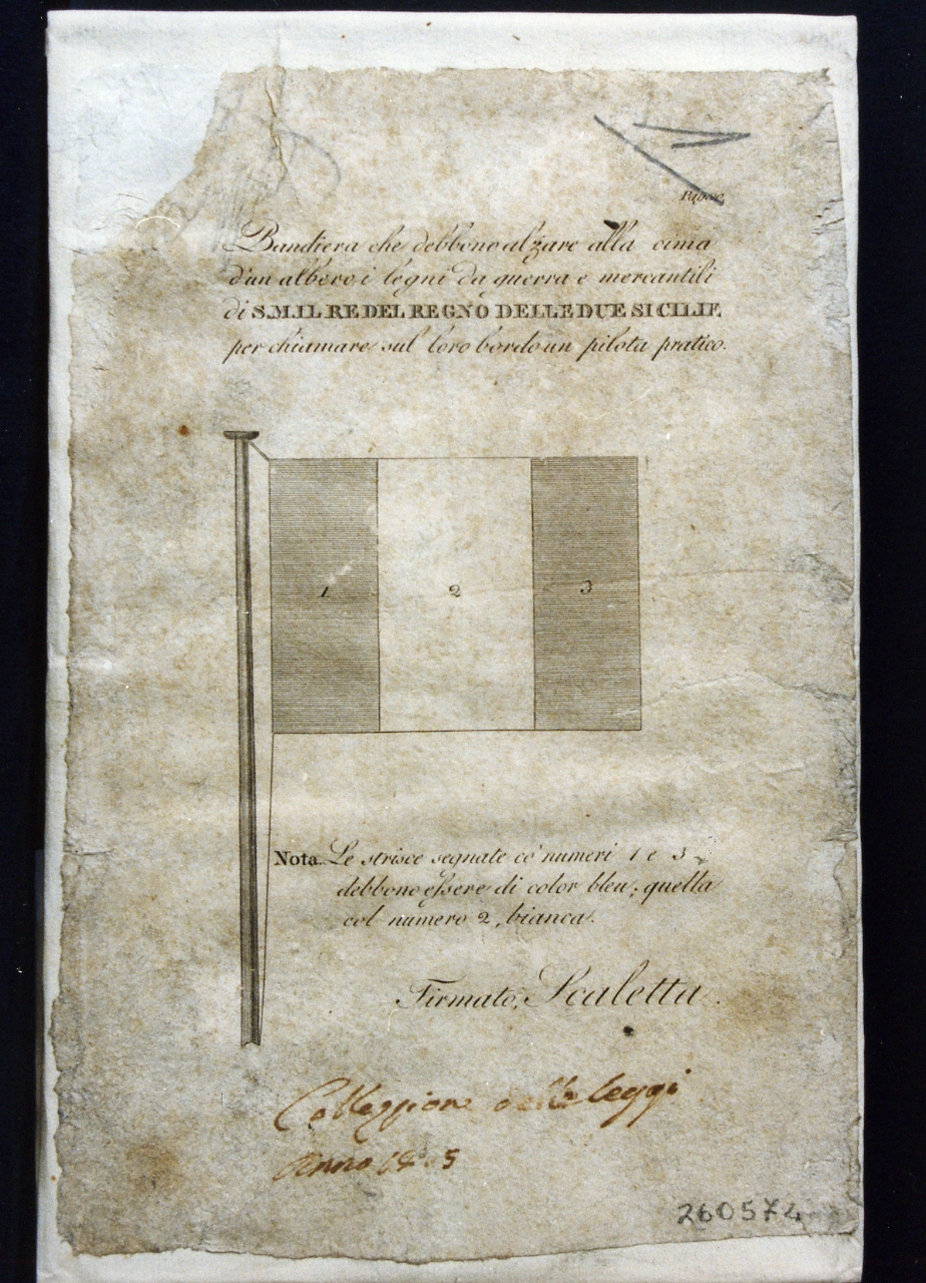 Bandiera che debbono alzare alla cima
d'un albero i legni da guerra e mercantili
di S.M. IL RE DEL REGNO DELLE DUE SICILIE
per chiamare sul loro bordo un pilota pratico.
1 2 3
Nota. Le strisce segnate co' numeri 1 e 3
debbono essere di color bleu; quella
col numero 2, bianca.
Firmato, Scaletta.
Collezzione delle leggi
Anno
260574